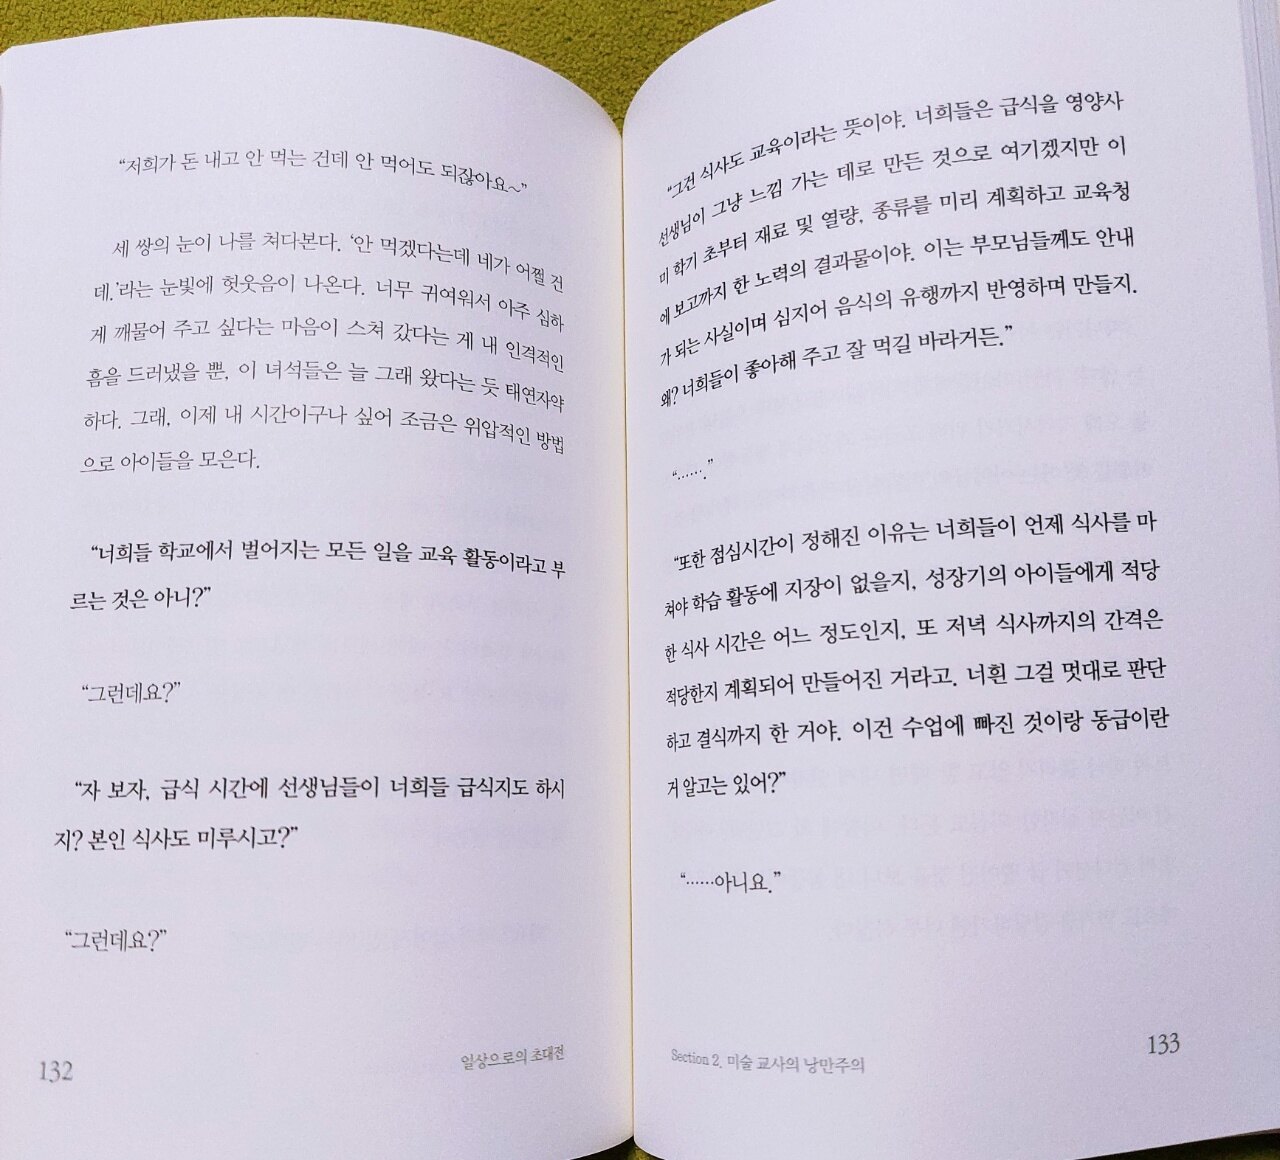 “저희가 돈 내고 안 먹는 건데 안 먹어도 되잖아요~”
세 쌍의 눈이 나를 쳐다본다. ‘안 먹겠다는데 네가 어쩔 건
데.’라는 눈빛에 헛웃음이 나온다. 너무 귀여워서 아주 심하
게 깨물어 주고 싶다는 마음이 스쳐 갔다는 게 내 인격적인
흠을 드러냈을 뿐, 이 녀석들은 늘 그래 왔다는 듯 태연자약
하다. 그래, 이제 내 시간이구나 싶어 조금은 위압적인 방법
으로 아이들을 모은다.
“너희들 학교에서 벌어지는 모든 일을 교육 활동이라고 부
르는 것은 아니?”
“그런데요?”
“자 보자, 급식 시간에 선생님들이 너희들 급식지도 하시
지? 본인 식사도 미루시고?”
“그런데요?”
132
일상으로의 초대전
“그건 식사도 교육이라는 뜻이야. 너희들은 급식을 영양사
선생님이 그냥 느낌 가는 데로 만든 것으로 여기겠지만 이
미 학기 초부터 재료 및 열량, 종류를 미리 계획하고 교육청
에 보고까지 한 노력의 결과물이야. 이는 부모님들께도 안내
가 되는 사실이며 심지어 음식의 유행까지 반영하며 만들지.
왜? 너희들이 좋아해 주고 잘 먹길 바라거든.”
“…….”
“또한 점심시간이 정해진 이유는 너희들이 언제 식사를 마
쳐야 학습 활동에 지장이 없을지, 성장기의 아이들에게 적당
한 식사 시간은 어느 정도인지, 또 저녁 식사까지의 간격은
적당한지 계획되어 만들어진 거라고. 너흰 그걸 멋대로 판단
하고 결식까지 한 거야. 이건 수업에 빠진 것이랑 동급이란
거 알고는 있어?”
“……아니요.”
Section 2. 미술 교사의 낭만주의
133